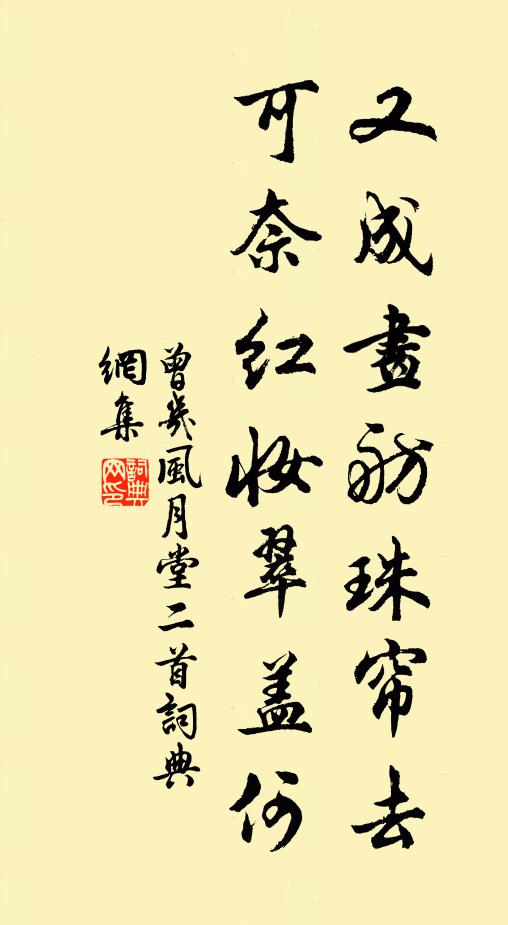 又成畫舫珠帘去
可奈红妆翠盖何
曾幾風月堂二首詞典
網集
詞典
网印